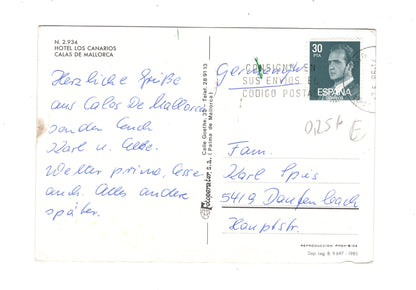 N. 2.934
HOTEL LOS CANARIOS
CALAS DE MALLORCA
Herzliche Grüße
aus Calas De Mallorca
senden Euch
Karl u. Elke.
Wetter prima, Essen
auch. Alles andere
später.
Calle Goethe, 39 - Telef. 28 91 13
(Palma de Mallorca)
S.A.
Germany
CONSIGNE EN
SUS ENVIOS EL
CODIGO POSTAL
30
PTA
ESPAÑA
0,25 €
Fam.
Karl Spis
5419 Daufenbach
Hauptstr.
REPRODUCCION PROHIBIDA
Dep. Leg. B. 9.697 - 1985